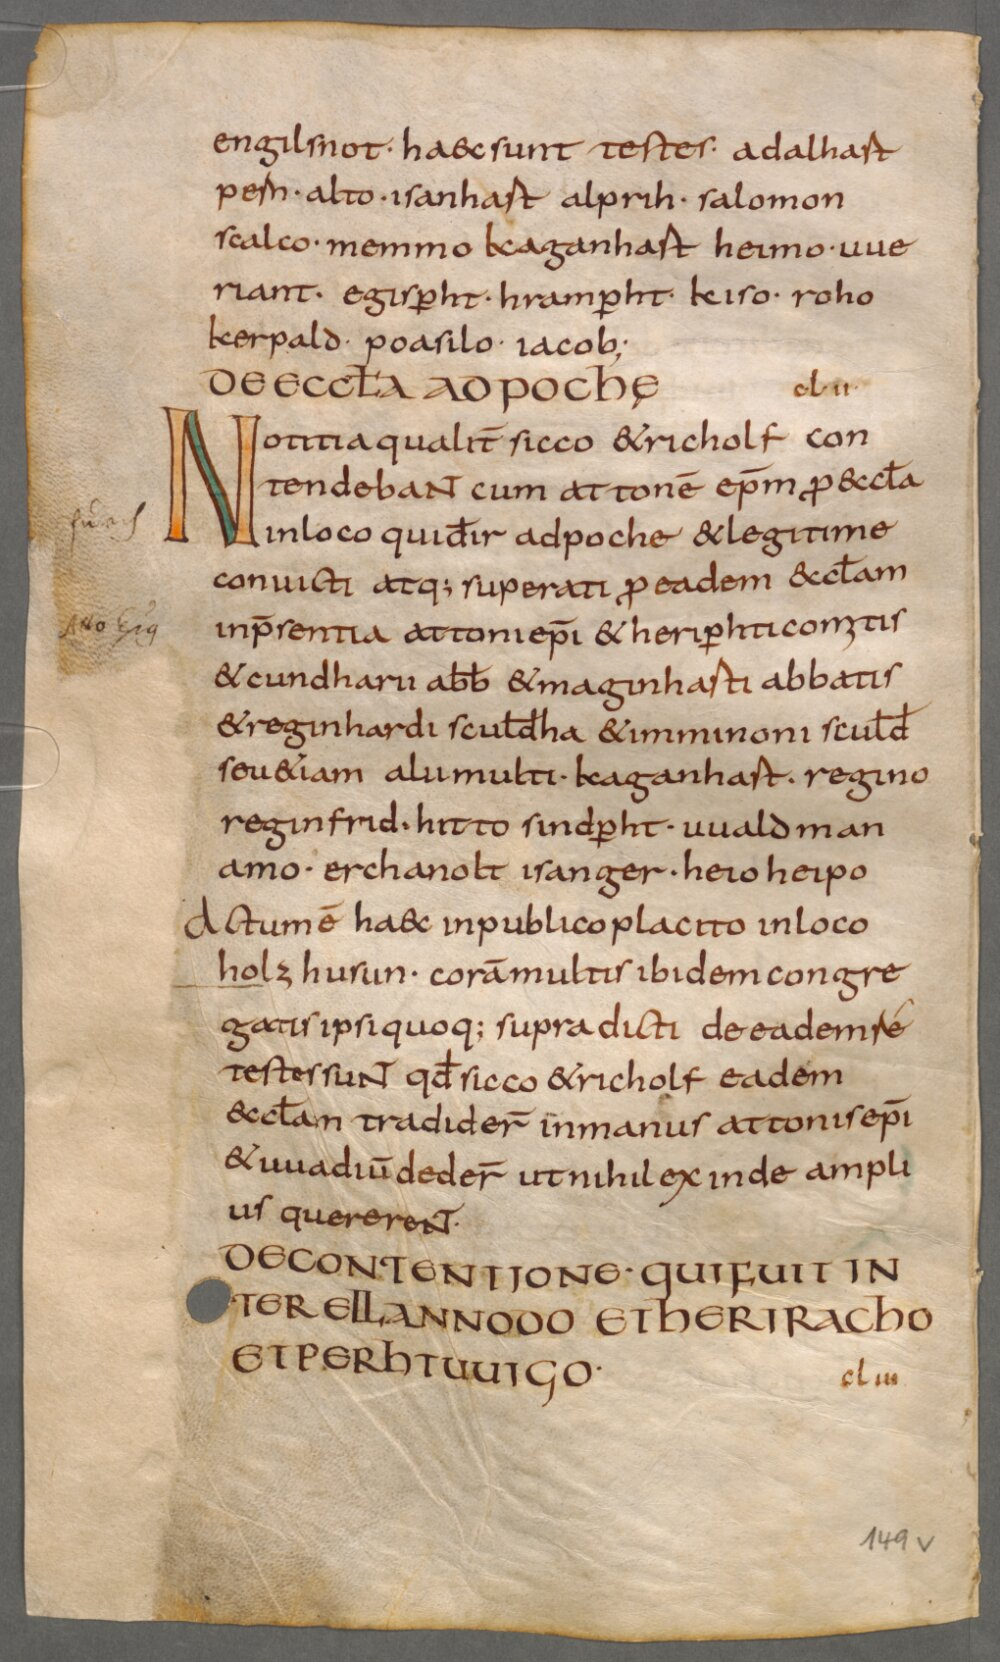 engilsnot· ha&c sunt testes· adalhast
pesn· alto· isanhast alprih· salomon
scalco· memmo kaganhast heimo· uue
riant· egisp̱ht· hramp̱ht· keiso· roho
kerpald· poasilo· iacob;·
DE ECCŁA AD POCHE cl·ii·
Notitia qualit̄ sicco & richolf con
tendebaNT cum attonē ep̄m ꝓ &ccła
in loco qui dr̄ ad poche & legitime
conuicti atq; superati ꝓ eadem &ccłam
in p̄sentia attoni ep̄i & herip̱hti comtis
& cundharii abb̄ & maginhasti abbatis
& reginhardi sculđha & imminoni sculđ
seu &iam alii multi· kaganhast· regino
reginfrid· hitto sindp̱ht· uualdman
amo· erchanolt isanger· heio heipo
Actum ē ha&c in publico placito in loco
holzhusun· corā multis ibidem congre
gatis ipsi quoq; supradicti de eadem rē
testes suNT qđ sicco & richolf eadem
&ccłam tradider̄ in manus attonis ep̄i
& uuadiū deder̄ ut nihil exinde ampli
us querereNT·
DE CONTENTIONE· QUI FUIT IN
TER ELLANNODO ET HERIRACHO
ET PERHTUUIGO· cl iii
149 v